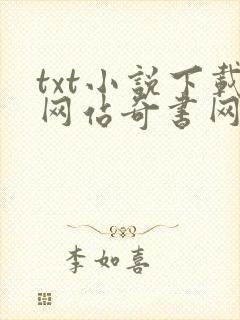 txt小説下載
网佔奇書网
李如喜